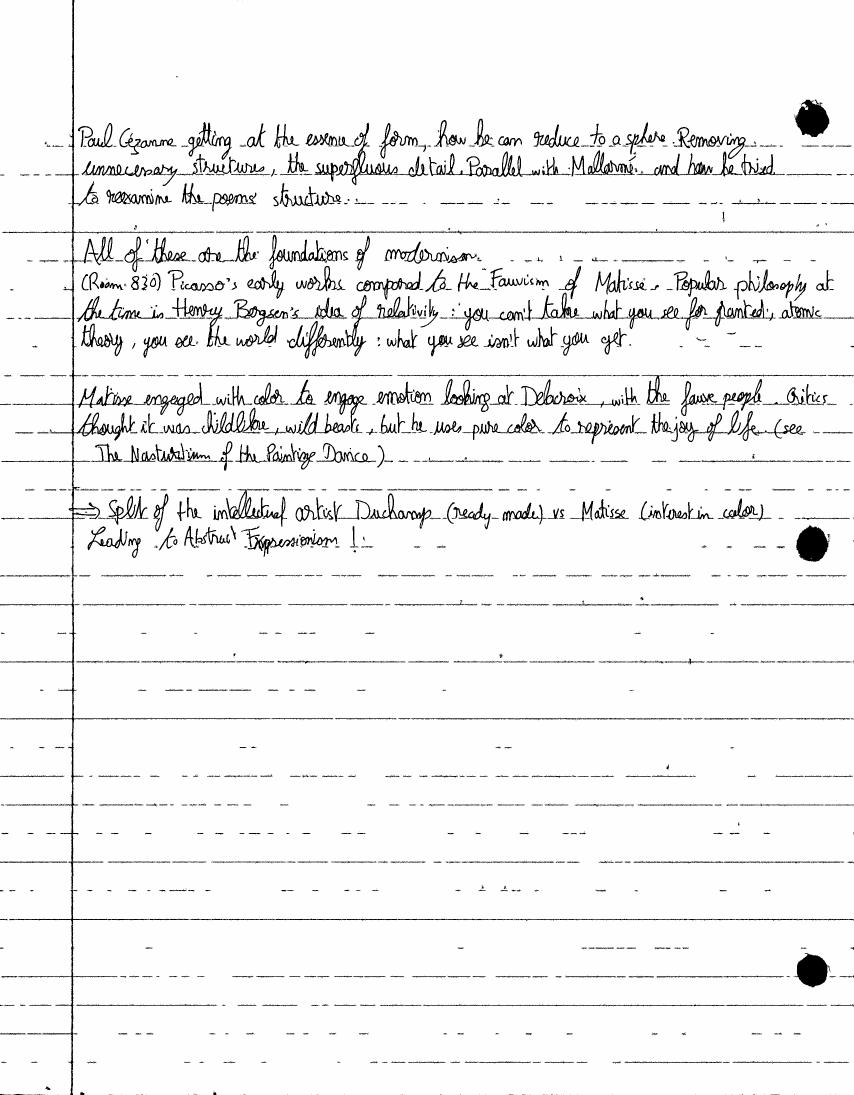 Paul Cézanne getting at the essence of form, how he can reduce to a sphere. Removing
unnecessary structures, the superfluous detail. Parallel with Mallarmé and how he tried
to reexamine the poems' structure.
All of these are the foundations of modernism.
(Room 830) Picasso's early works compared to the Fauvism of Matisse. Popular philosophy at
the time is Henry Bergsen's idea of relativity: you can't take what you see for granted, atomic
theory, you see the world differently: what you see isn't what you get.
Matisse engaged with color to engage emotion looking at Delacroix, with the fauve people. Critics
thought it was childlike, wild beasts, but he uses pure color to represent the joy of life (see
The Nasturtium of the Paintings Dance)
⇒ Split of the intellectual artist Duchamp (ready made) vs Matisse (interest in color)
Leading to Abstract Expressionism!